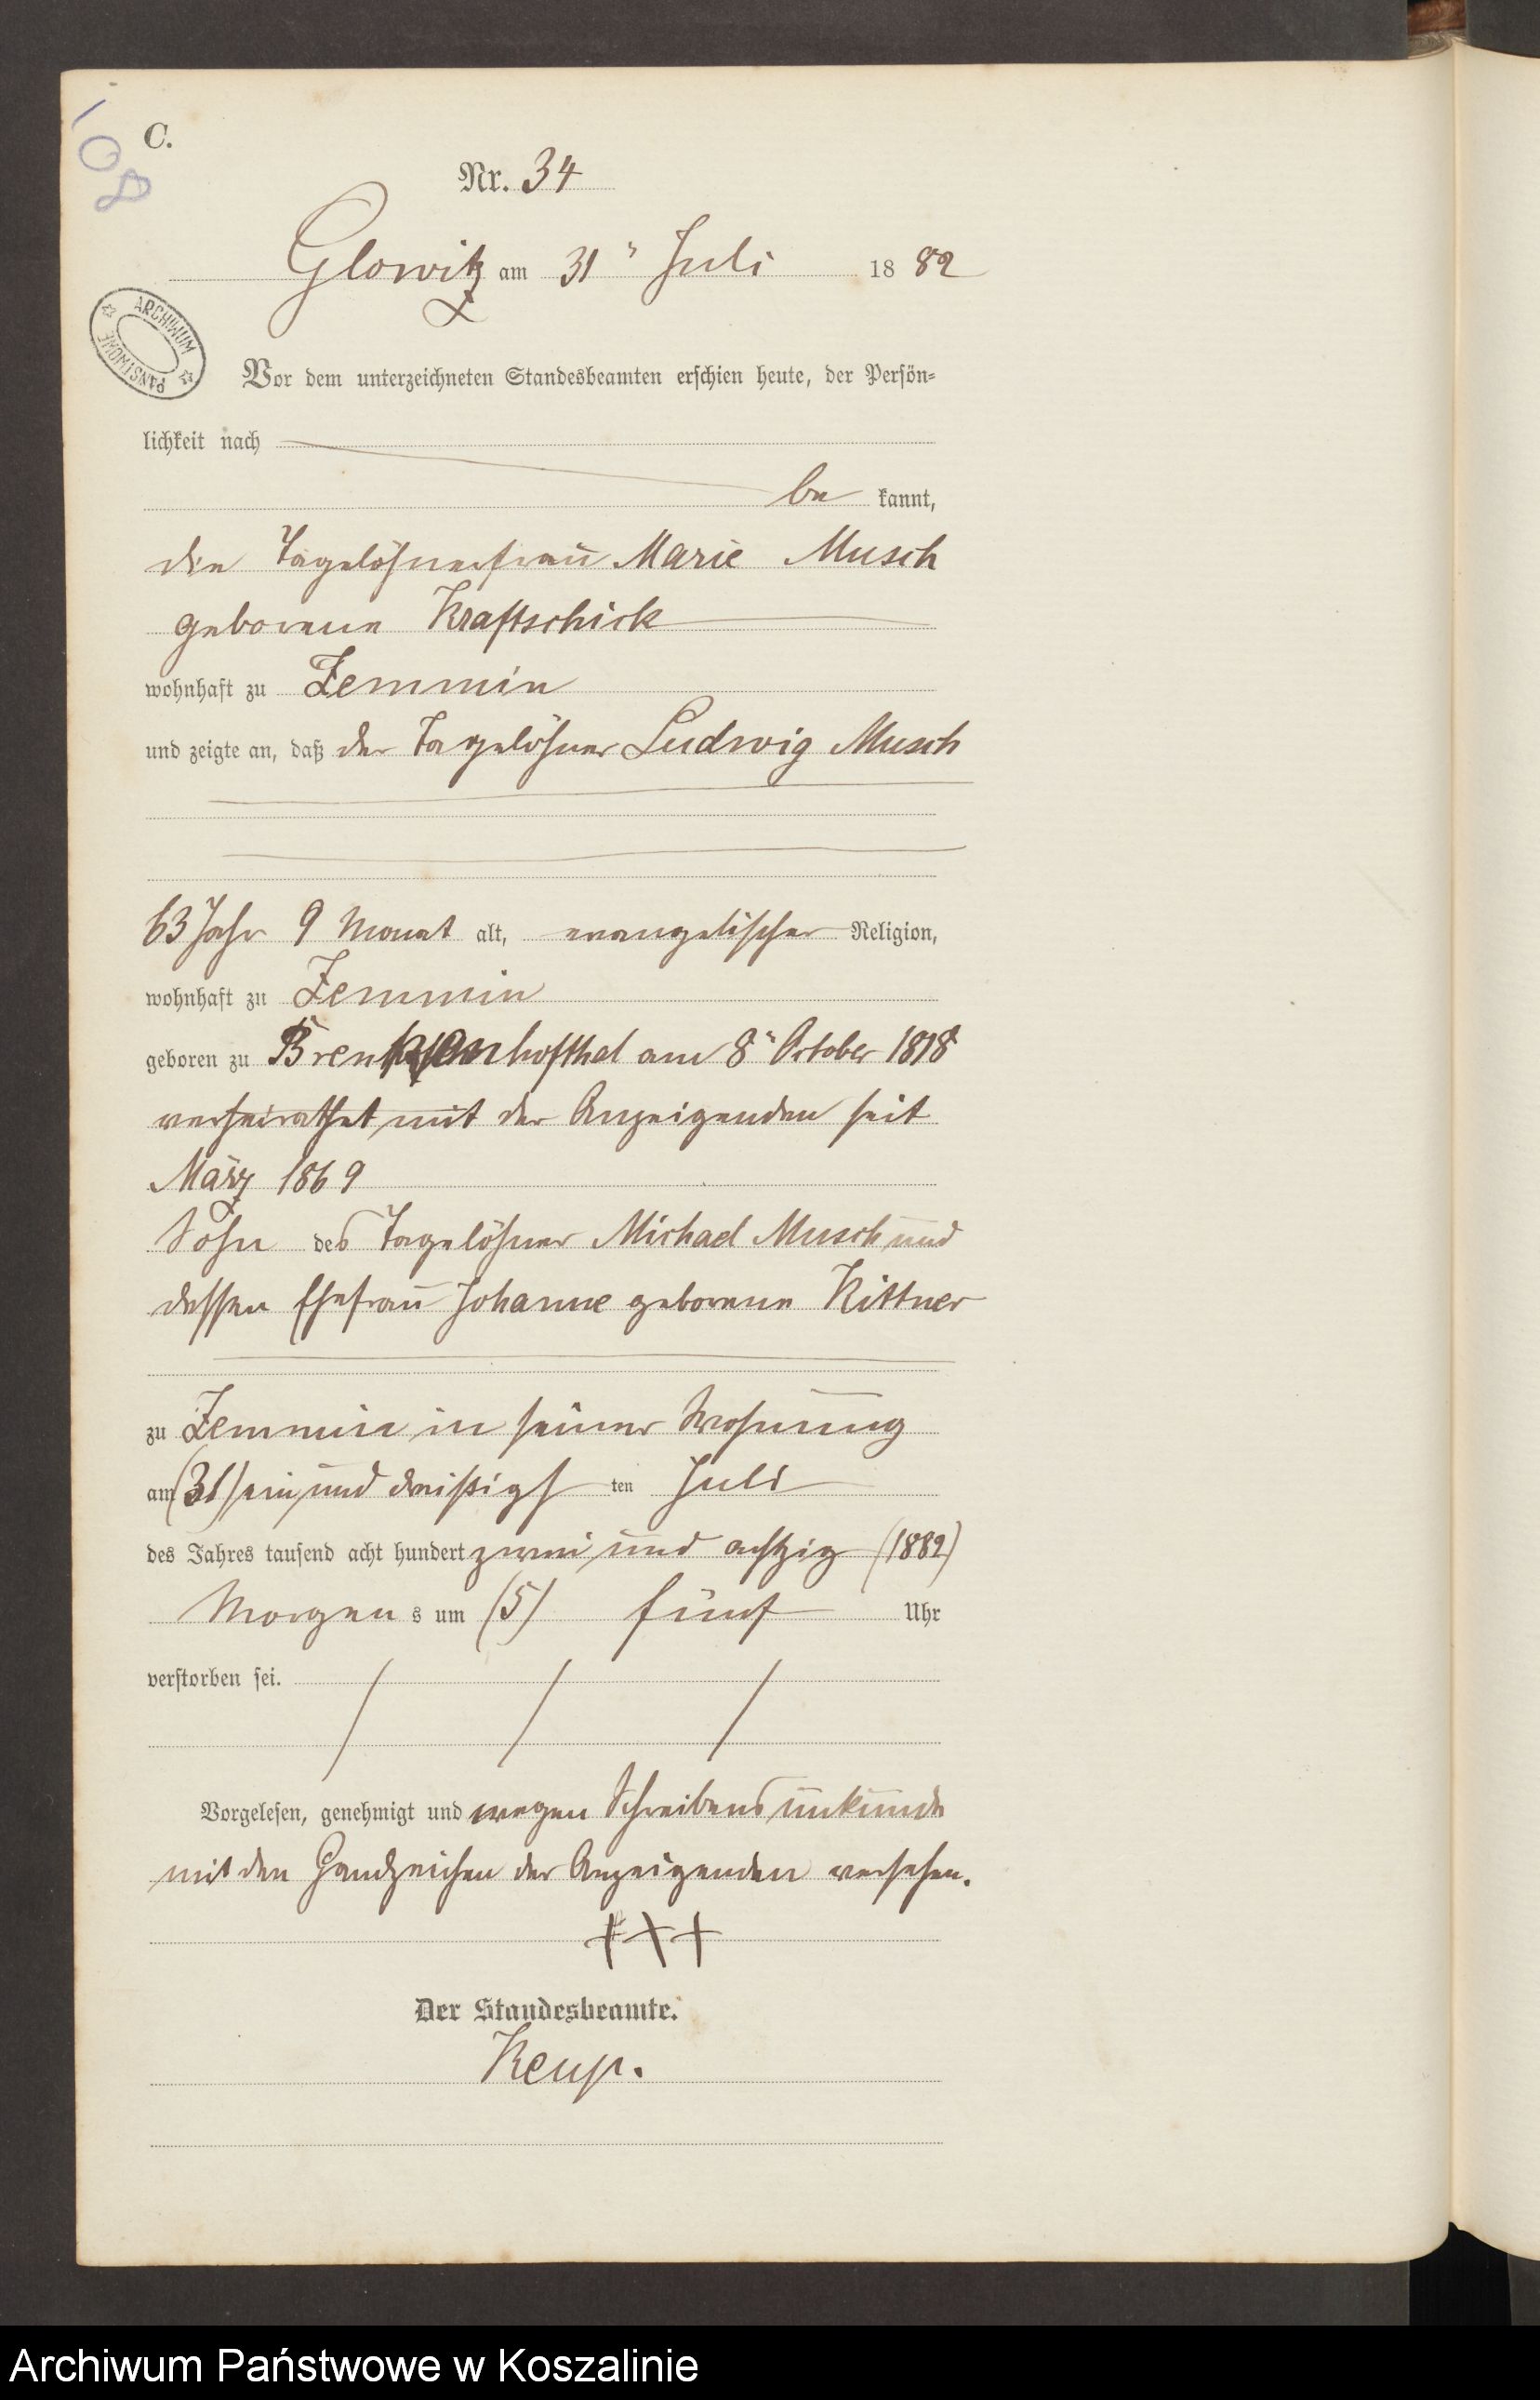 108
C.
Nr. 34
Glowitz am 31ten Juli 1882
ARCHIWUM PAŃSTWOWE
Vor dem unterzeichneten Standesbeamten erschien heute, der Persön=
lichkeit nach
be kannt,
die Tagelöhnerfrau Marie Musch
geborene Kraftschick
wohnhaft zu Zemmin
und zeigte an, daß der Tagelöhner Ludwig Musch
63 Jahr 9 Monat alt, evangelischer Religion,
wohnhaft zu Zemmin
geboren zu Brenkenhofthal am 8ten October 1818
verheirathet mit der Anzeigenden seit
März 1869
Sohn des Tagelöhner Michael Musch und
dessen Ehefrau Johanne geborene Kittner
zu Zemmin in seiner Wohnung
am (31) ein und dreißigsten Juli
des Jahres tausend acht hundert zwei und achtzig (1882)
Morgens um (5) fünf Uhr
verstorben sei.
Vorgelesen, genehmigt und wegen Schreibensunkunde
mit den Handzeichen der Anzeigenden versehen.
+++
Der Standesbeamte.
Keup.
Archiwum Państwowe w Koszalinie